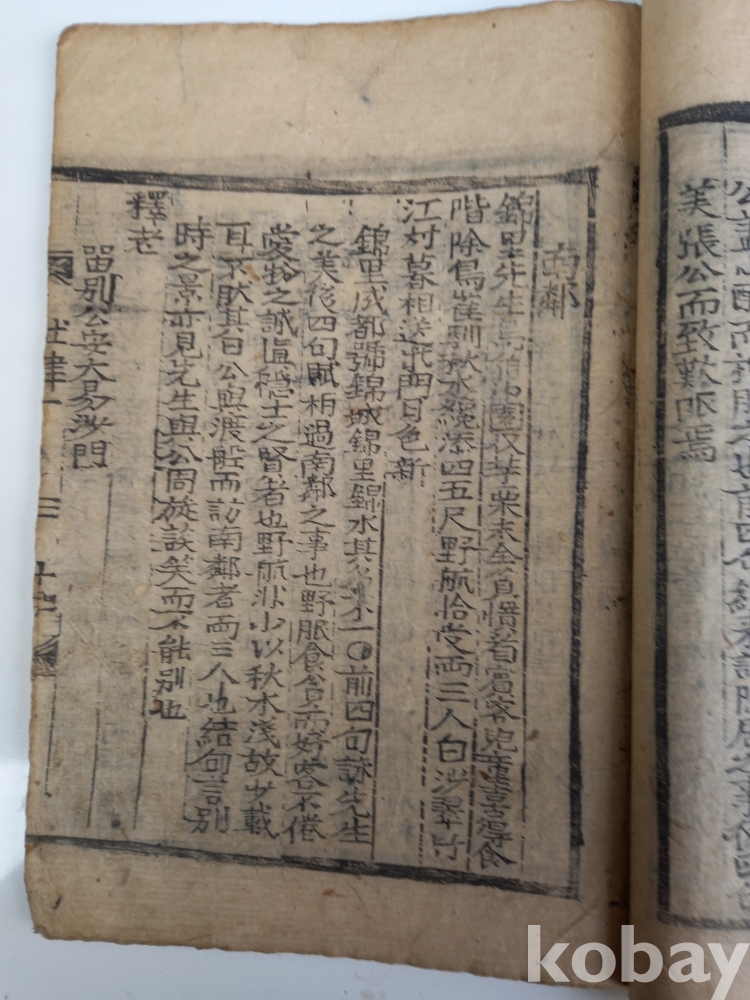 美張公而致歎焉
南鄰
錦里先生烏角巾園收芋栗未全貧慣看賓客兒童喜得食
階除鳥雀馴秋水纔添四五尺野航恰受兩三人白沙翠竹
江村暮相送柴門月色新
錦里成都號錦城錦里錦水其名不一〇前四句詠先生
之美後四句賦相過南鄰之事也野服食貧而好客不倦
愛物之誠真隱士之賢者也野航非小以秋水淺故少載
耳不厭其曰公與渡船而訪南鄰者兩三人也結句言別
時之景亦見先生與公周旋談笑而不能別也
釋老
留別公安大易沙門
杜律一
kobay